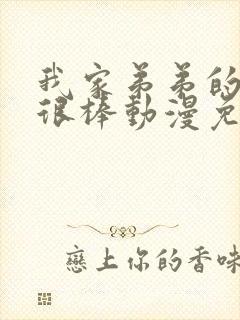 我家弟弟的
很棒動漫免
戀上你的香味